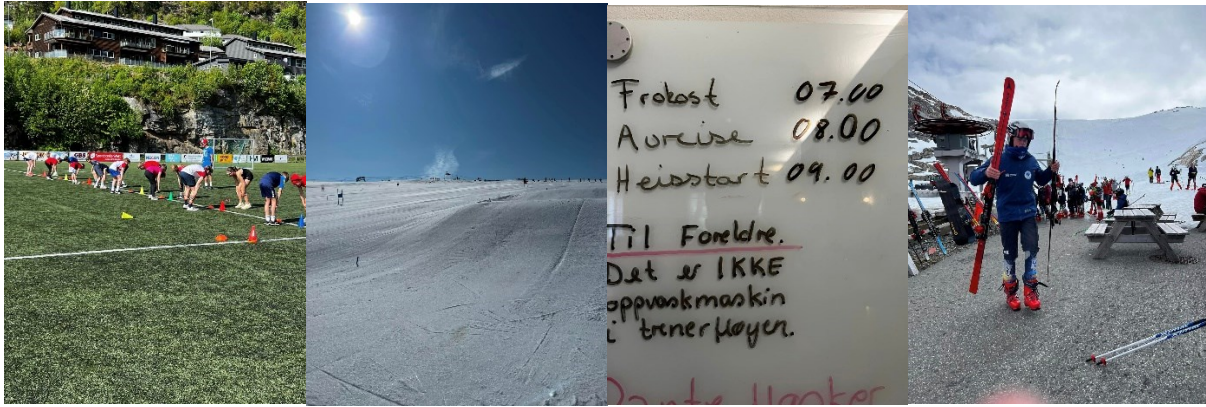 Frokost 07.00
Avreise 08.00
Heisstart 09.00
Til Foreldre.
Det er IKKE
oppvaskmaskin
i trenerhøyen.